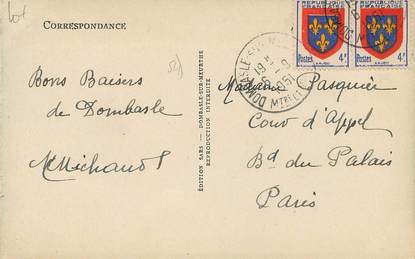 CORRESPONDANCE
Bons Baisers
de Dombasle
M Michaud
ÉDITION SABS — DOMBASLE-SUR-MEURTHE
REPRODUCTION INTERDITE
RÉPUBLIQUE FRANÇAISE
Postes 4F
ANJOU
RÉPUBLIQUE FRANÇAISE
Postes 4F
ANJOU
Madame Pasquier
Cour d'Appel
Bd du Palais
Paris